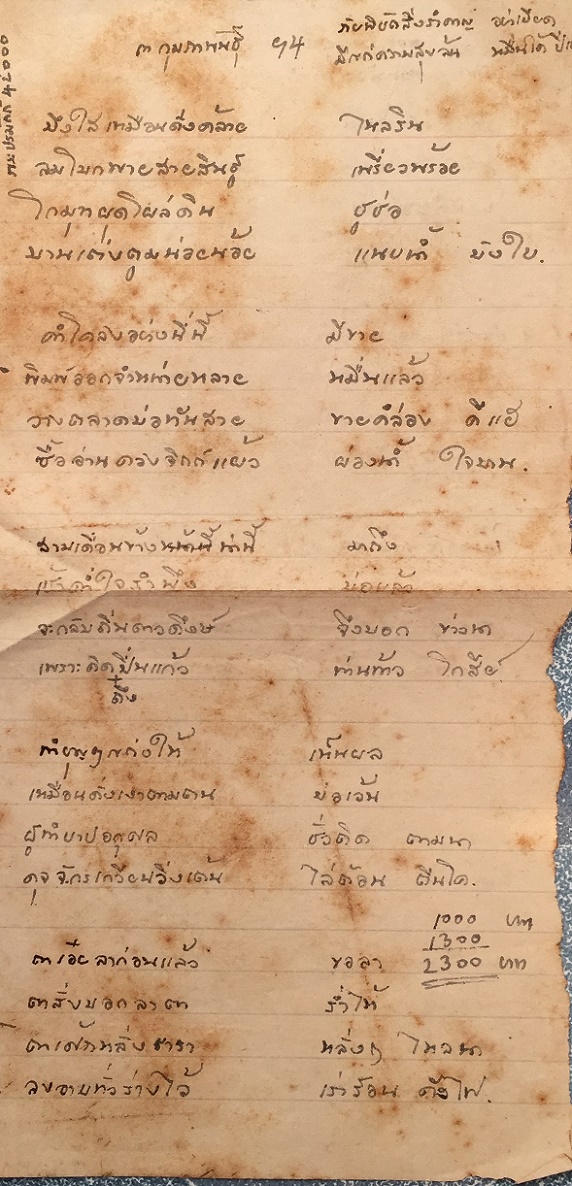 ๓ กุมภาพันธ์ ๙๔
บึงใสเหมือนดั่งคล้าย ไหลริน
ลมโบกพายสายสินธุ์ เพรี่ยวพร้อย
โกมุทผุดโผล่ดิน ชูช่อ
บานเต่งตูมน่อยน้อย แนบน้ำ บังใบ.
คำโคลงอย่างนี้นี้ มีขาย
พิมพ์ออกจำหน่ายหลาย หมื่นแล้ว
วางตลาดบ่อทันสาย ขายคล่อง ดีแฮ
ซื้ออ่านดวงจิตต์แผ้ว ผ่องน้ำ ใจบาน.
สามเดือนข้างหน้านี้ มาถึง
จะกลับถิ่นดาวดึงษ์ จึงบอก ข่าวนา
เพราะคิดปิ่นแก้ว ท่านท้าว โกสีย์
ถึง
ทำบุญๆส่งให้ เห็นผล
เหมือนดั่งเงาตามตน บ่อเว้น
ผู้ทำบาปอกุศล ชั่วติด ตามนา
ดุจจักรเกวียนวิ่งเต้น ไล่ต้อน ตีนโค.
1000 บาท
1300
2300 บาท
ตาเอ๋ยลาก่อนแล้ว ขอลา
ตาสั่งบอกลาตา ร่ำไห้
ตาเศ้าหลั่งธารา หลั่งๆ ไหลนา
ลงอาบทั่วร่างไว้ เร่าร้อน ดังไฟ.